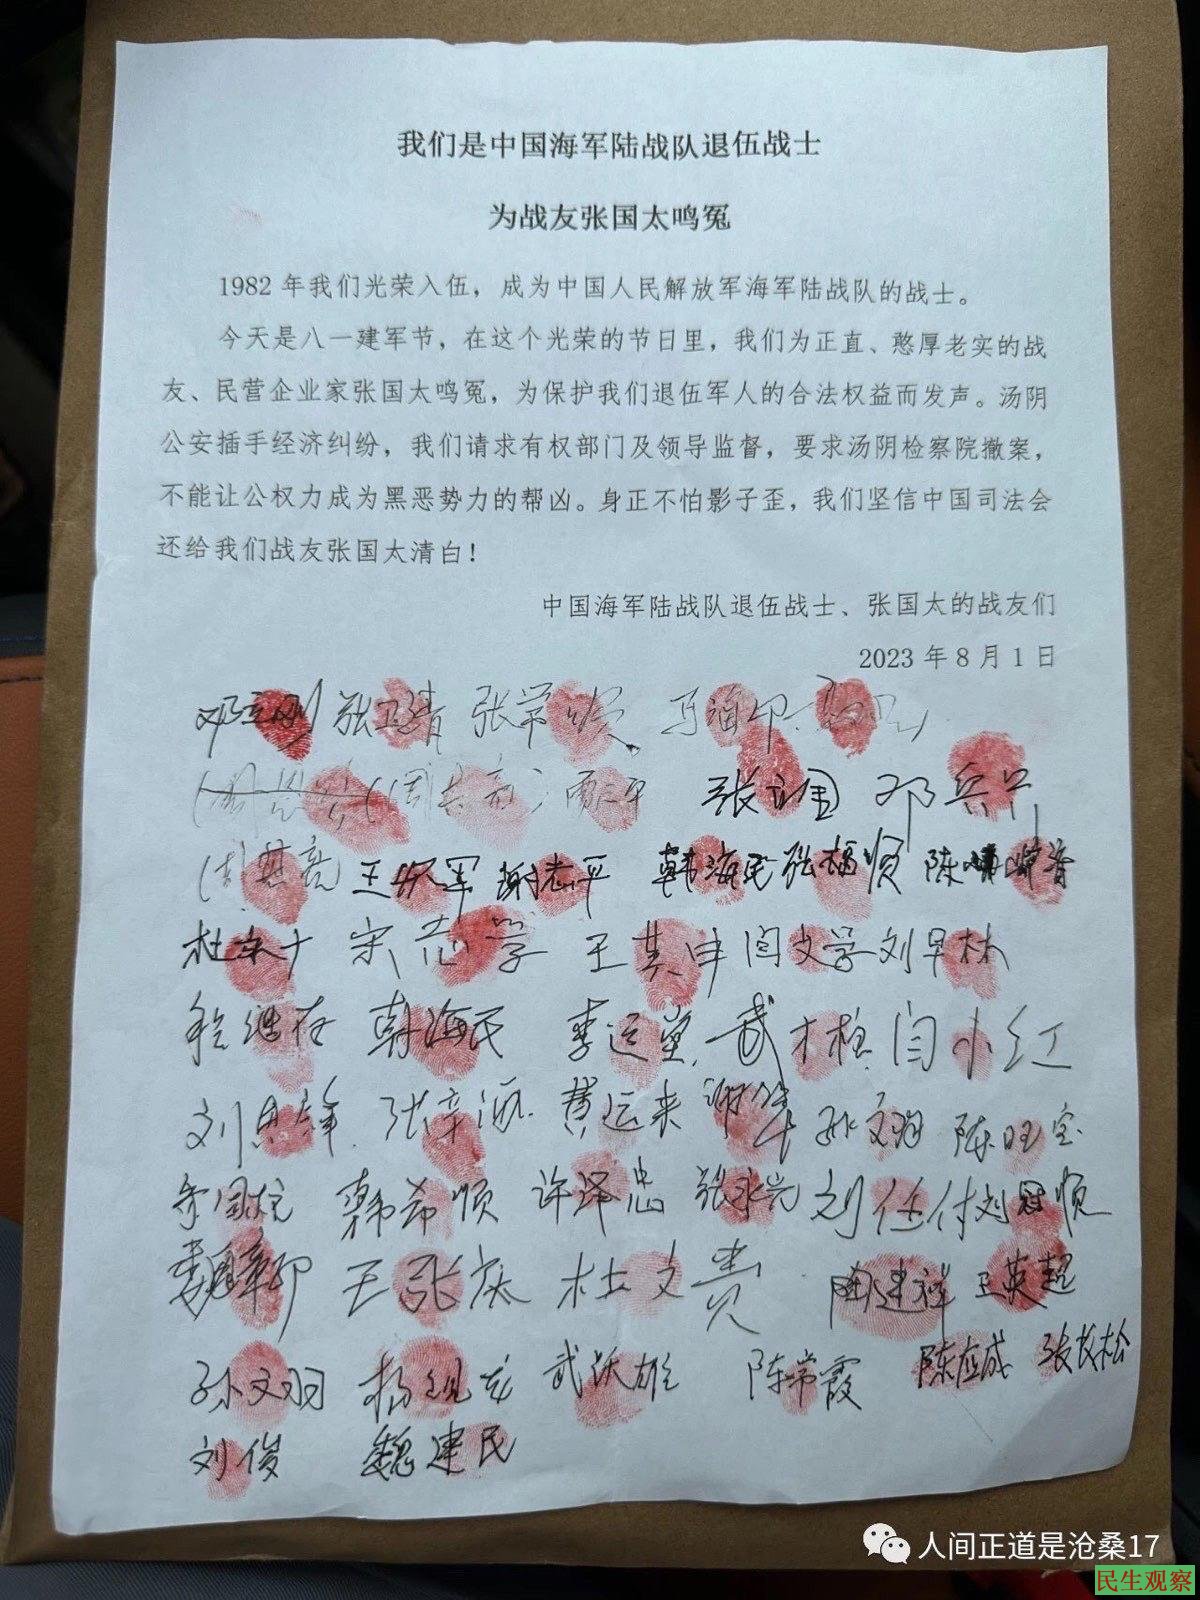 我们是中国海军陆战队退伍战士
为战友张国太鸣冤
1982年我们光荣入伍，成为中国人民解放军海军陆战队的战士。
今天是八一建军节，在这个光荣的节日里，我们为正直、憨厚老实的战
友、民营企业家张国太鸣冤，为保护我们退伍军人的合法权益而发声。汤阴
公安插手经济纠纷，我们请求有权部门及领导监督，要求汤阴检察院撤案，
不能让公权力成为黑恶势力的帮凶。身正不怕影子歪，我们坚信中国司法会
还给我们战友张国太清白！
中国海军陆战队退伍战士、张国太的战友们
2023年8月1日
张立国 邓兵
谢志平 韩海民 张
宋 学 王其申 闫文学 刘早林
韩海民 李运 武 闫小红
刘思锋 张 运来 孙文 陈旺宝
李国 韩希顺 许泽忠 张永兴 刘任付 刘 顺
王张 杜文贵 陶建祥 王英超
孙文羽 杨 武跃雄 陈常霞 陈应成 张 松
刘俊 魏建民
人间正道是沧桑17
民生观察